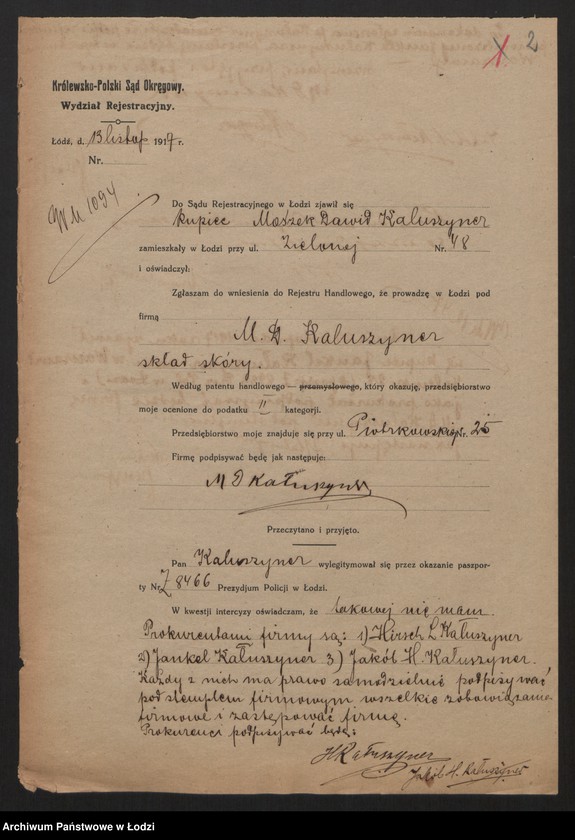 1 2
Królewsko-Polski Sąd Okręgowy.
Wydział Rejestracyjny.
Łódź, d. 13 listop 1917 r.
Nr.
1094
Do Sądu Rejestracyjnego w Łodzi zjawił się
kupiec Moszek Dawid Kałuszyner
zamieszkały w Łodzi przy ul. Zielonej Nr. 48
i oświadczył:
Zgłaszam do wniesienia do Rejestru Handlowego, że prowadzę w Łodzi pod
firmą
M. D. Kałuszyner
skład skóry.
Według patentu handlowego — przemysłowego, który okazuję, przedsiębiorstwo
moje ocenione do podatku II kategorji.
Przedsiębiorstwo moje znajduje się przy ul. Piotrkowskiej Nr. 25
Firmę podpisywać będę jak następuje:
M D Kałuszyner
Przeczytano i przyjęto.
Pan Kałuszyner wylegitymował się przez okazanie paszpor-
ty Nr. Z 8466 Prezydjum Policji w Łodzi.
W kwestji intercyzy oświadczam, że takowej nie mam.
Prokurentami firmy są: 1) Hirsch L Kałuszyner
2) Jankel Kałuszyner 3) Jakób H. Kałuszyner.
Każdy z nich ma prawo samodzielnie podpisywać
pod stemplem firmowym wszelkie zobowiązania
firmowe i zastępować firmę.
Prokurenci podpisywać będą:
H Kałuszyner
Jakób H. Kałuszyner
Archiwum Państwowe w Łodzi